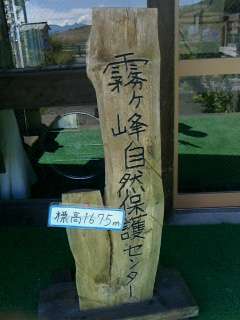 霧ヶ峰自然保護センター
標高1675m